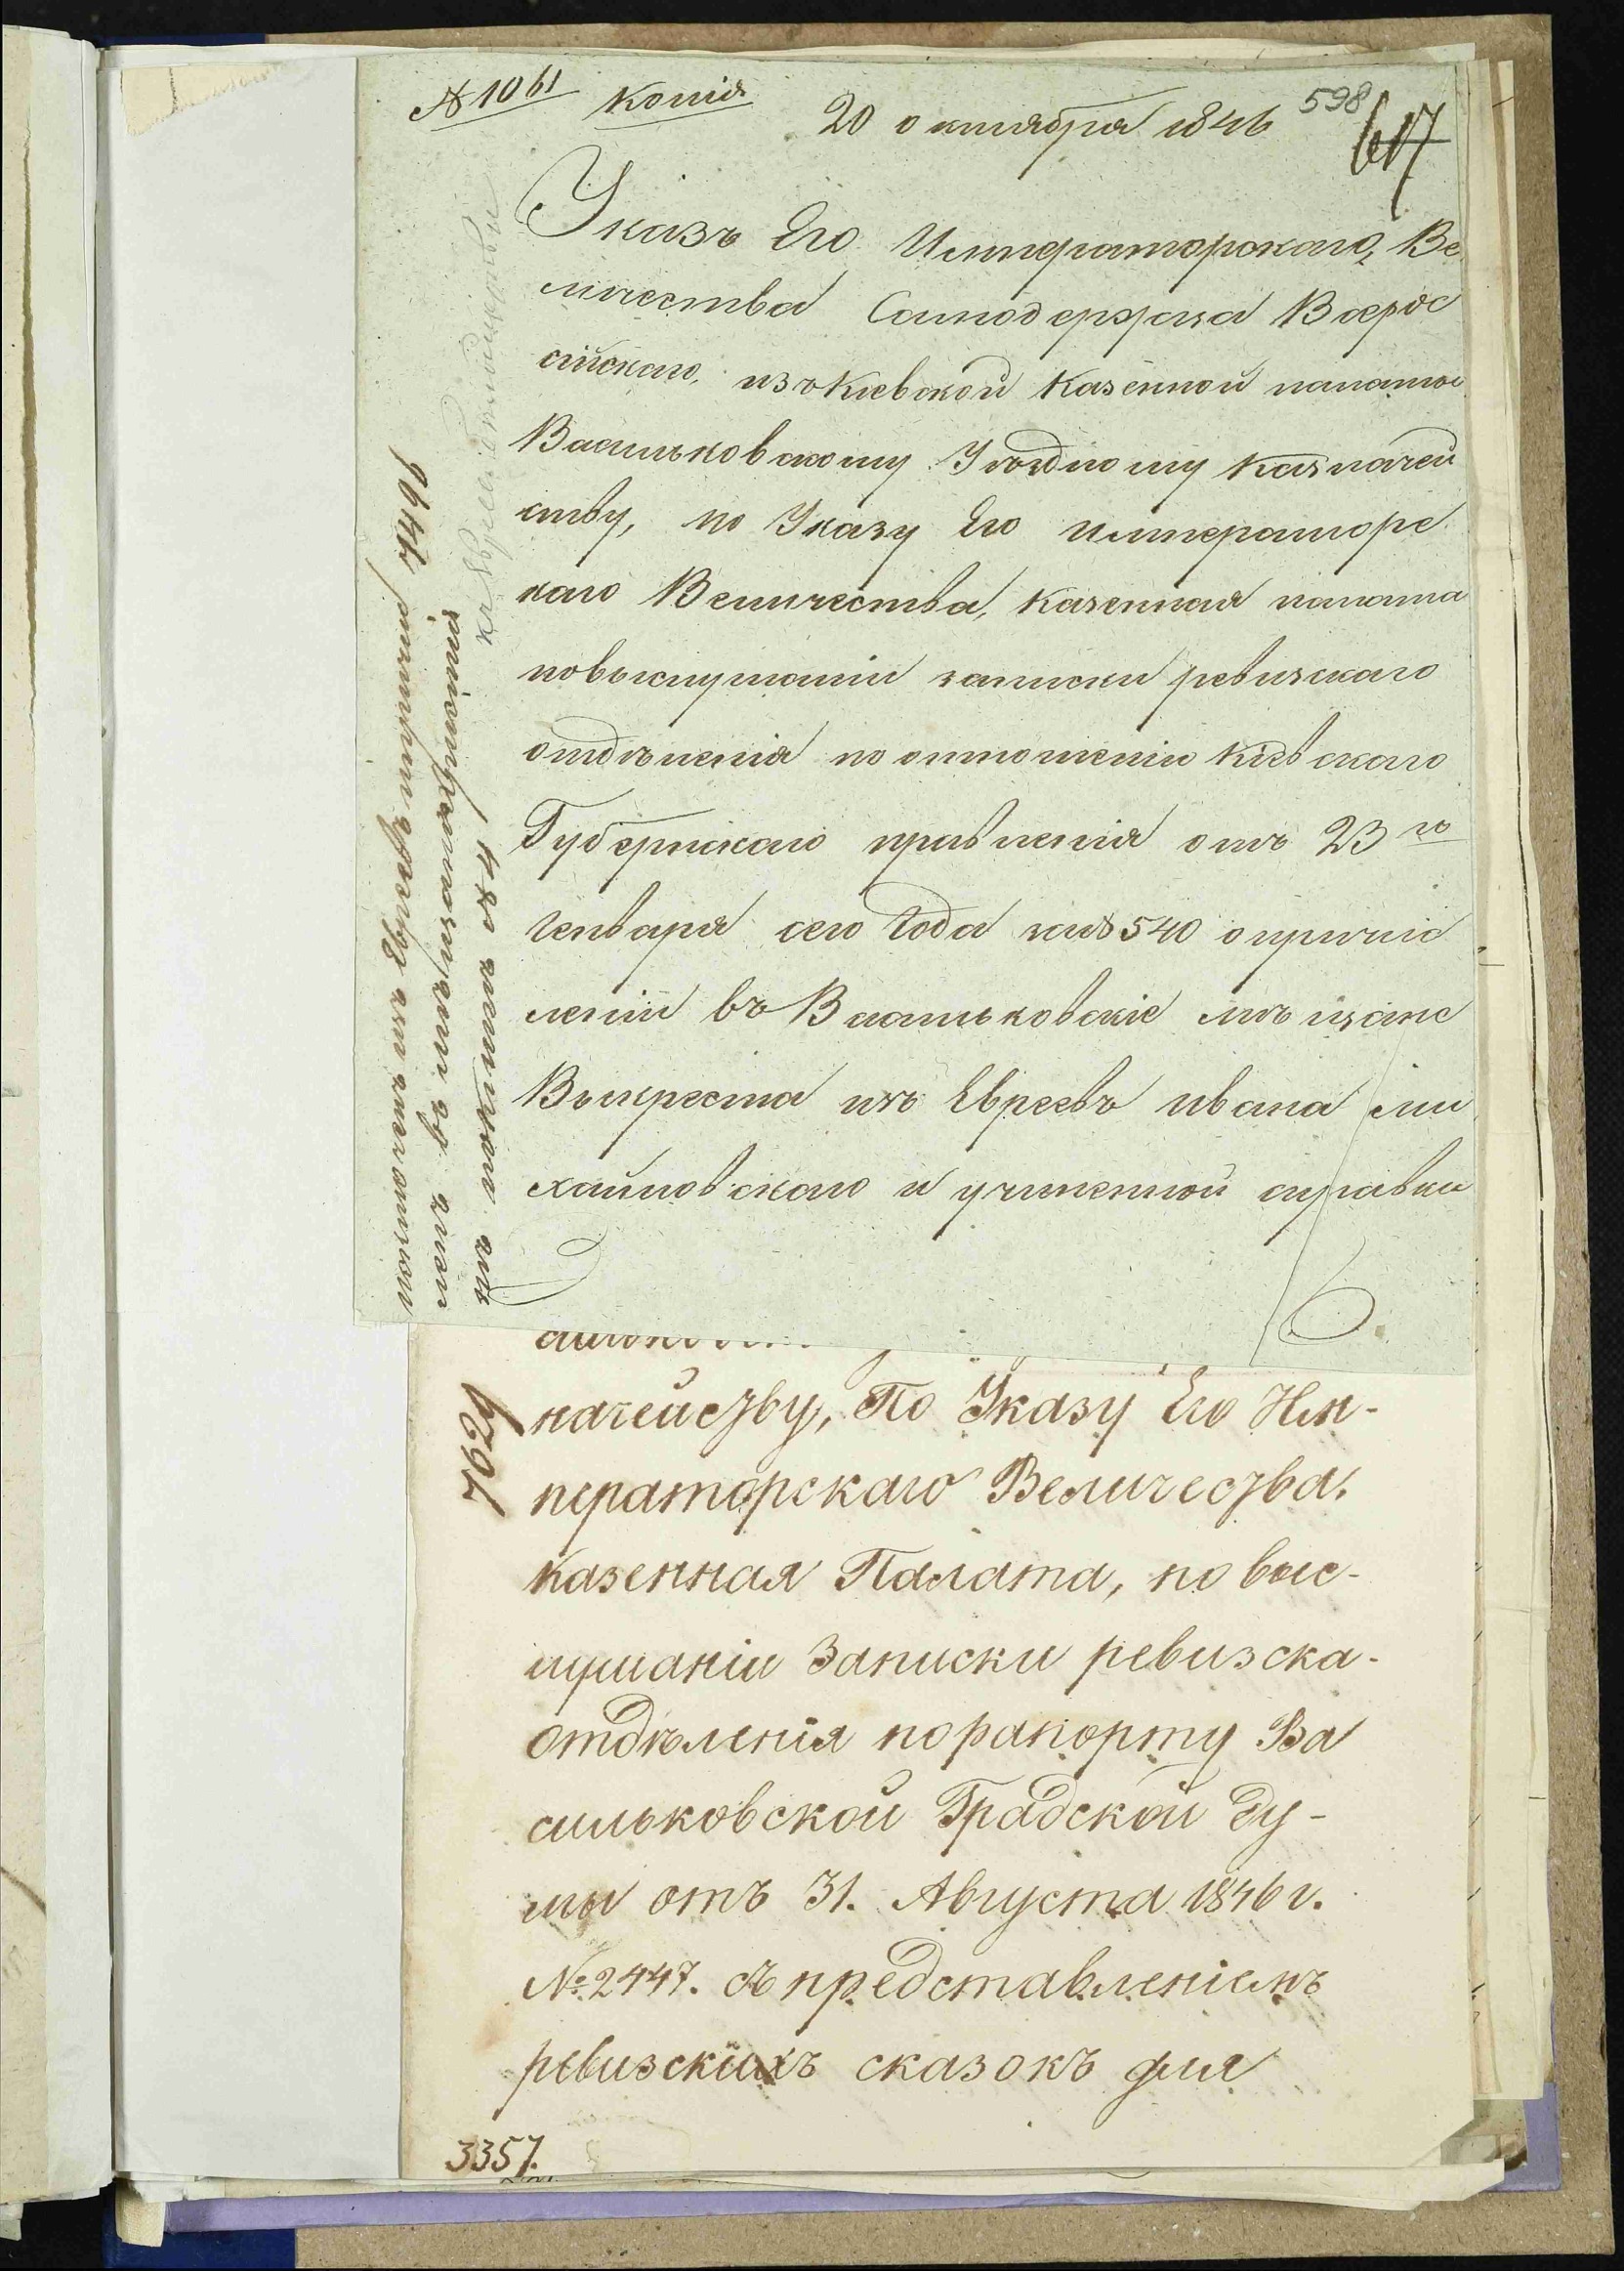 № 1061 Копія 20 октября 1846 598 617
Указъ Его Императорскаго Ве
личества Самодержца Всерос
сійскаго, изъ Кіевской Казенной палаты
Васильковскому Уѣздному Казначей
ству, по Указу Его Императорс
каго Величества, Казенная палата
повыслушаніи записки ревизскаго
отдѣленія по отношенію Кіевскаго
Губернскаго правленія отъ 23 го
Генваря сего Года за № 540 о причис
леніи въ Васильковскіе мѣщане
Выкреста изъ Евреевъ Ивана Ми
хайловскаго и учиненной справки
7446
лен въ
7629
начейству, По Указу Его Им-
ператорскаго Величества,
Казенная Палата, по выс-
лушаніи Записки ревизска-
отдѣленія порапорту Ва
сильковской Градской Ду-
мы отъ 31. Августа 1846 г.
№ 2447. съ представленіемъ
ревизскихъ сказокъ для
3357.